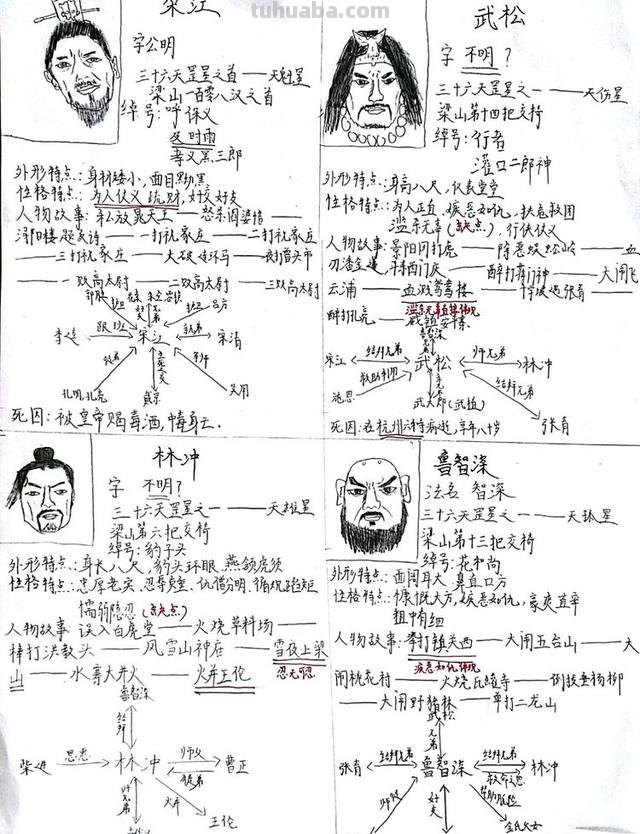 tuhuaba.com
宋江
字公明
三十六天罡星之首——天魁星
梁山一百零八汉之首
绰号:呼保义
及时雨
孝义黑三郎
外形特点:身材矮小,面目黝黑
性格特点:为人仗义疏财,好交好友
人物故事:私放晁天王——怒杀阎婆惜——
浔阳楼题反诗——一打祝家庄——二打祝家庄
——三打祝家庄——大破连环马——夜打曾头市
——一败高太尉——二败高太尉——三败高太尉
宋江
宋清
吴用
孔明,孔亮
死因:被皇帝赐毒酒,中毒身亡.
武松
字 不明?
三十六天罡星之一——天伤星
梁山第十四把交椅
绰号:行者
灌口二郎神
外形特点:身高八尺,仪表堂堂
性格特点:为人正直,嫉恶如仇,扶危救困
滥杀无辜(缺点),行侠仗义
人物故事:景阳冈打虎——除恶蜈蚣岭——
刃潘金莲,斗杀西门庆——醉打蒋门神——大闹飞
云浦——血溅鸳鸯楼——
醉打孔亮
鲁智深
宋江
结拜兄弟
武松
师兄弟
林冲
施恩
结拜兄弟
武大郎(武植)
张青
死因:在杭州六和寺病逝,享年八十岁
林冲
字 不明?
三十六天罡星之一——天雄星
梁山第六把交椅
绰号:豹子头
外形特点:身长八尺,豹头环眼,燕颔虎须
性格特点:忠厚老实,忍辱负重,仇惜分明,循规蹈矩
懦弱隐忍(缺点)
人物故事:误入白虎堂——火烧草料场——
棒打洪教头——风雪山神庙——雪夜上梁
山——水寨大并火——火并王伦
忍无可忍
鲁智深
柴进
恩惠
林冲
师父
徒弟
曹正
火并
王伦
鲁智深
法名 智深
三十六天罡星之一——天孤星
梁山第十三把交椅
绰号:花和尚
外形特点:面阔耳大,鼻直口方
性格特点:慷慨大方,嫉恶如仇,豪爽直率
粗中有细
人物故事:拳打镇关西——大闹五台山——大
嫉恶如仇体现
闹桃花村——火烧瓦罐寺——倒拔垂杨柳
——大闹野猪林——单打二龙山
武松
张青
结拜兄弟
鲁智深
结拜兄弟
林冲
救命之恩
师徒
好友
金氏父女